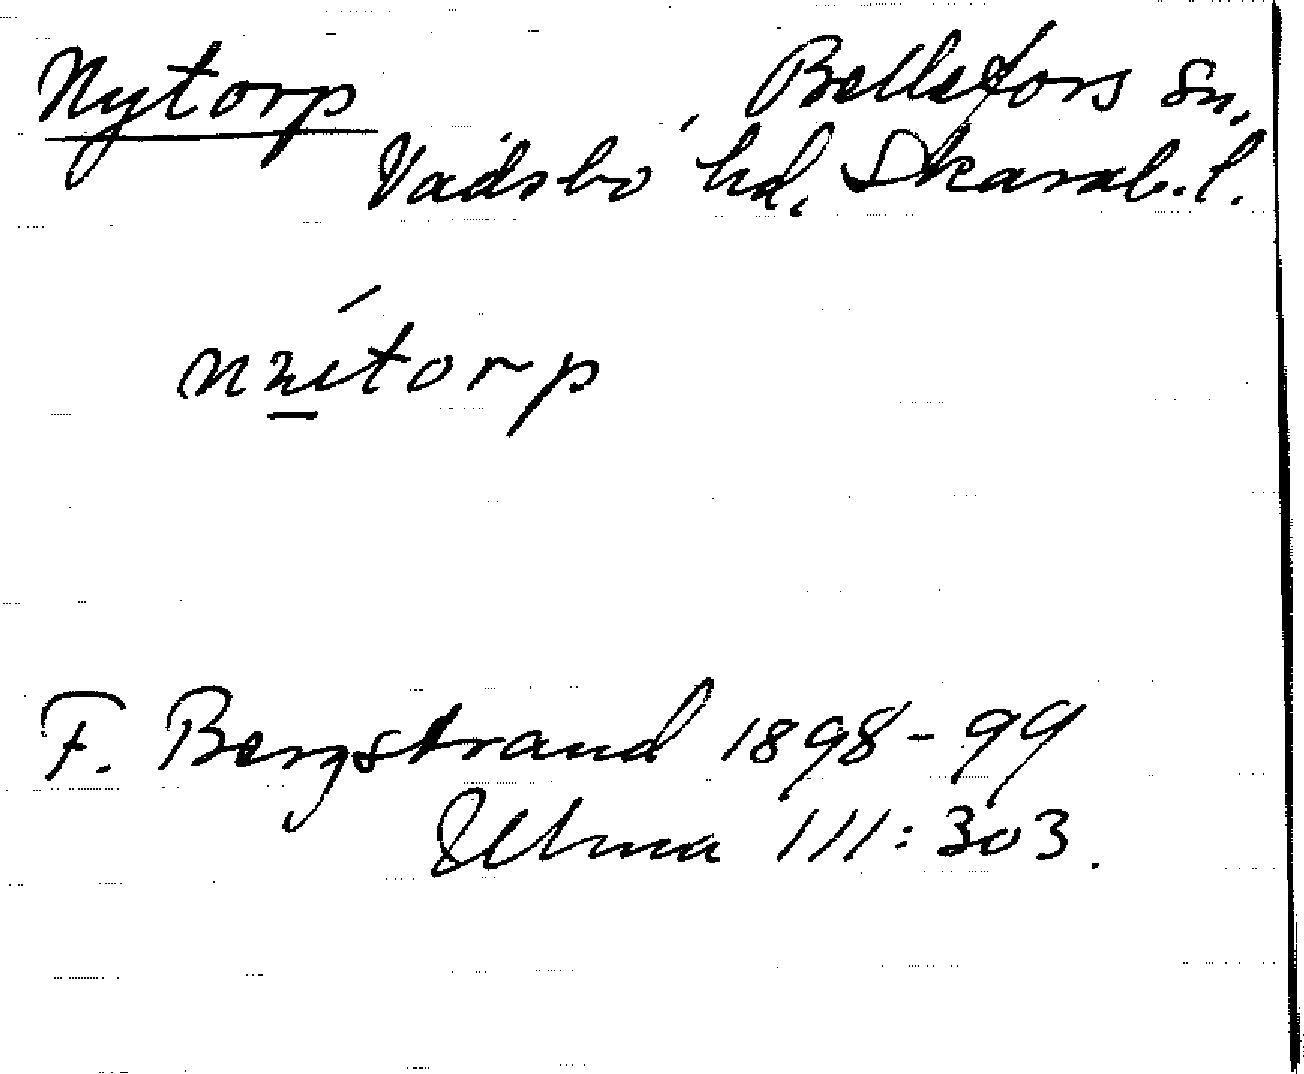 Nytorp Bellefors sn,
Vadsbo hd, Skarab. l.
F. Bergstrand 1898-99
Ulma 111:303.